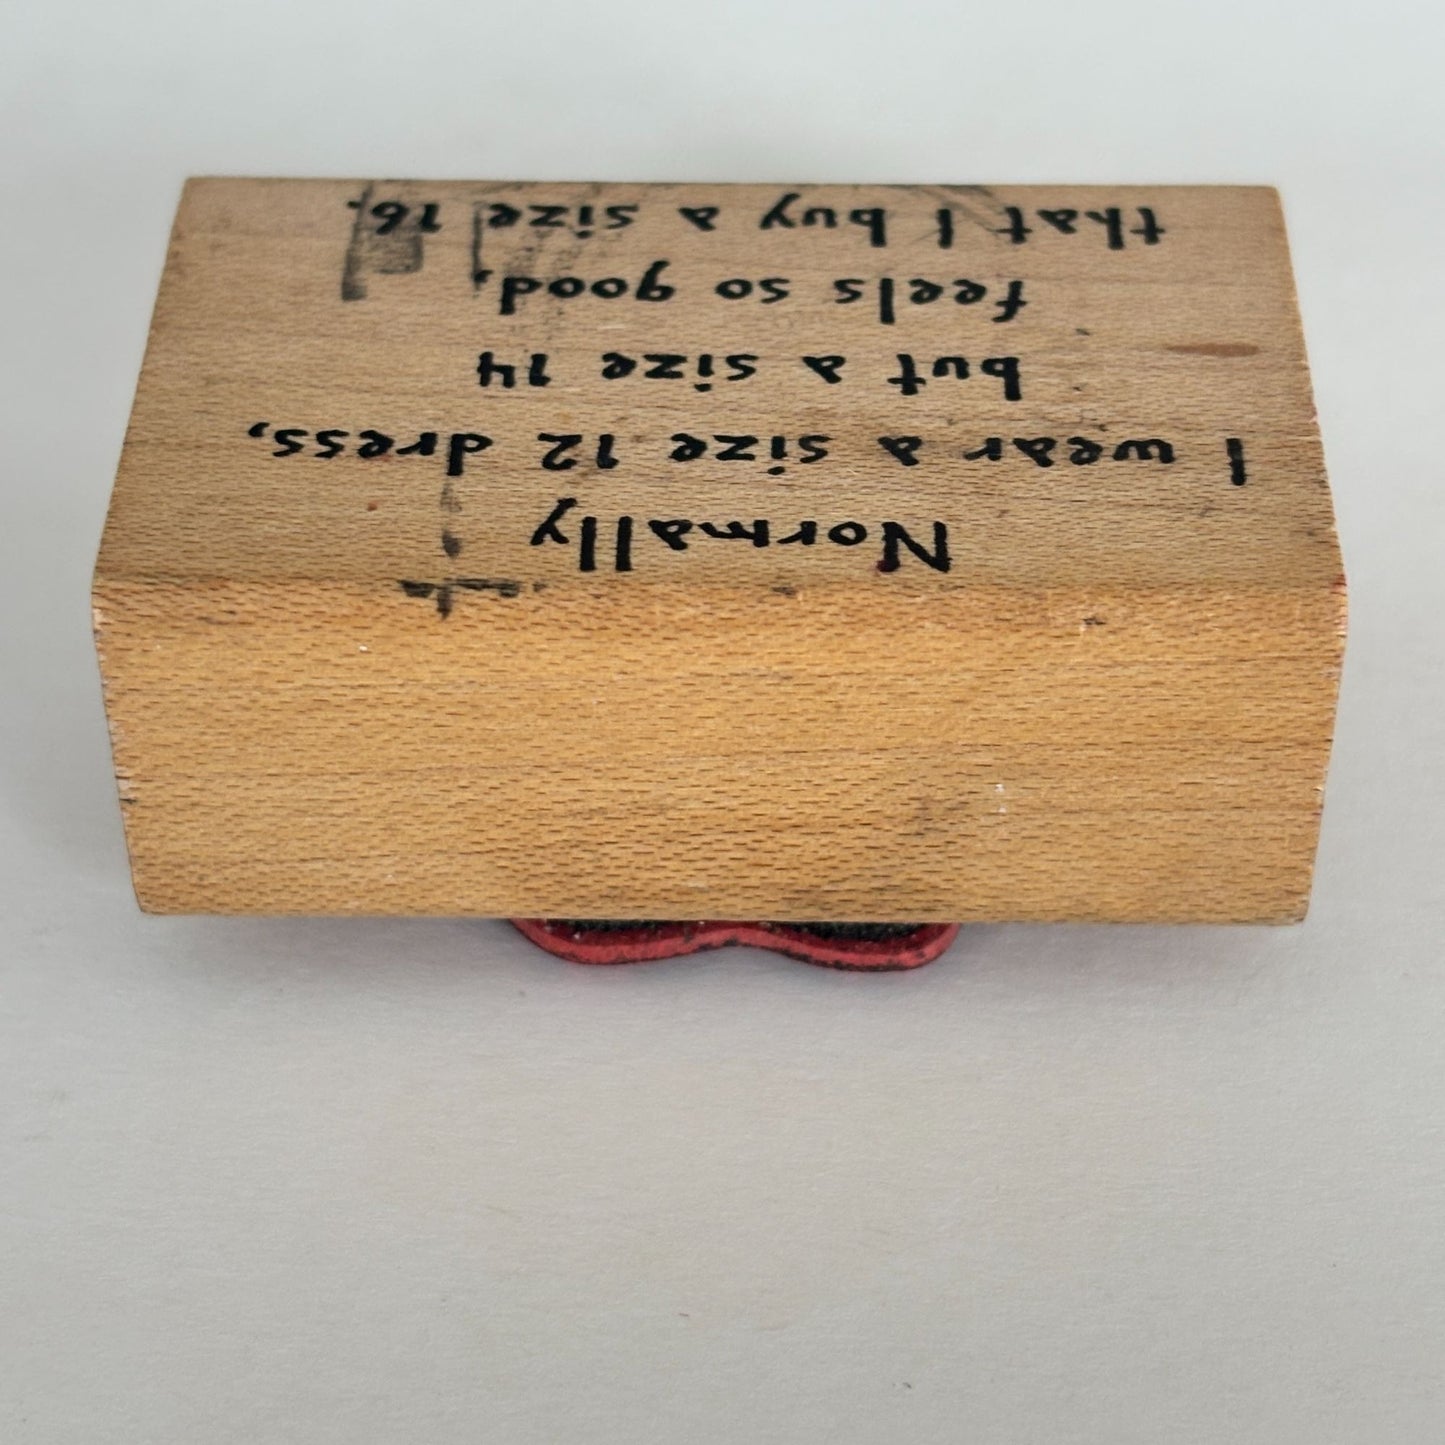 Normally
I wear a size 12 dress,
but a size 14
feels so good,
that I buy a size 16.